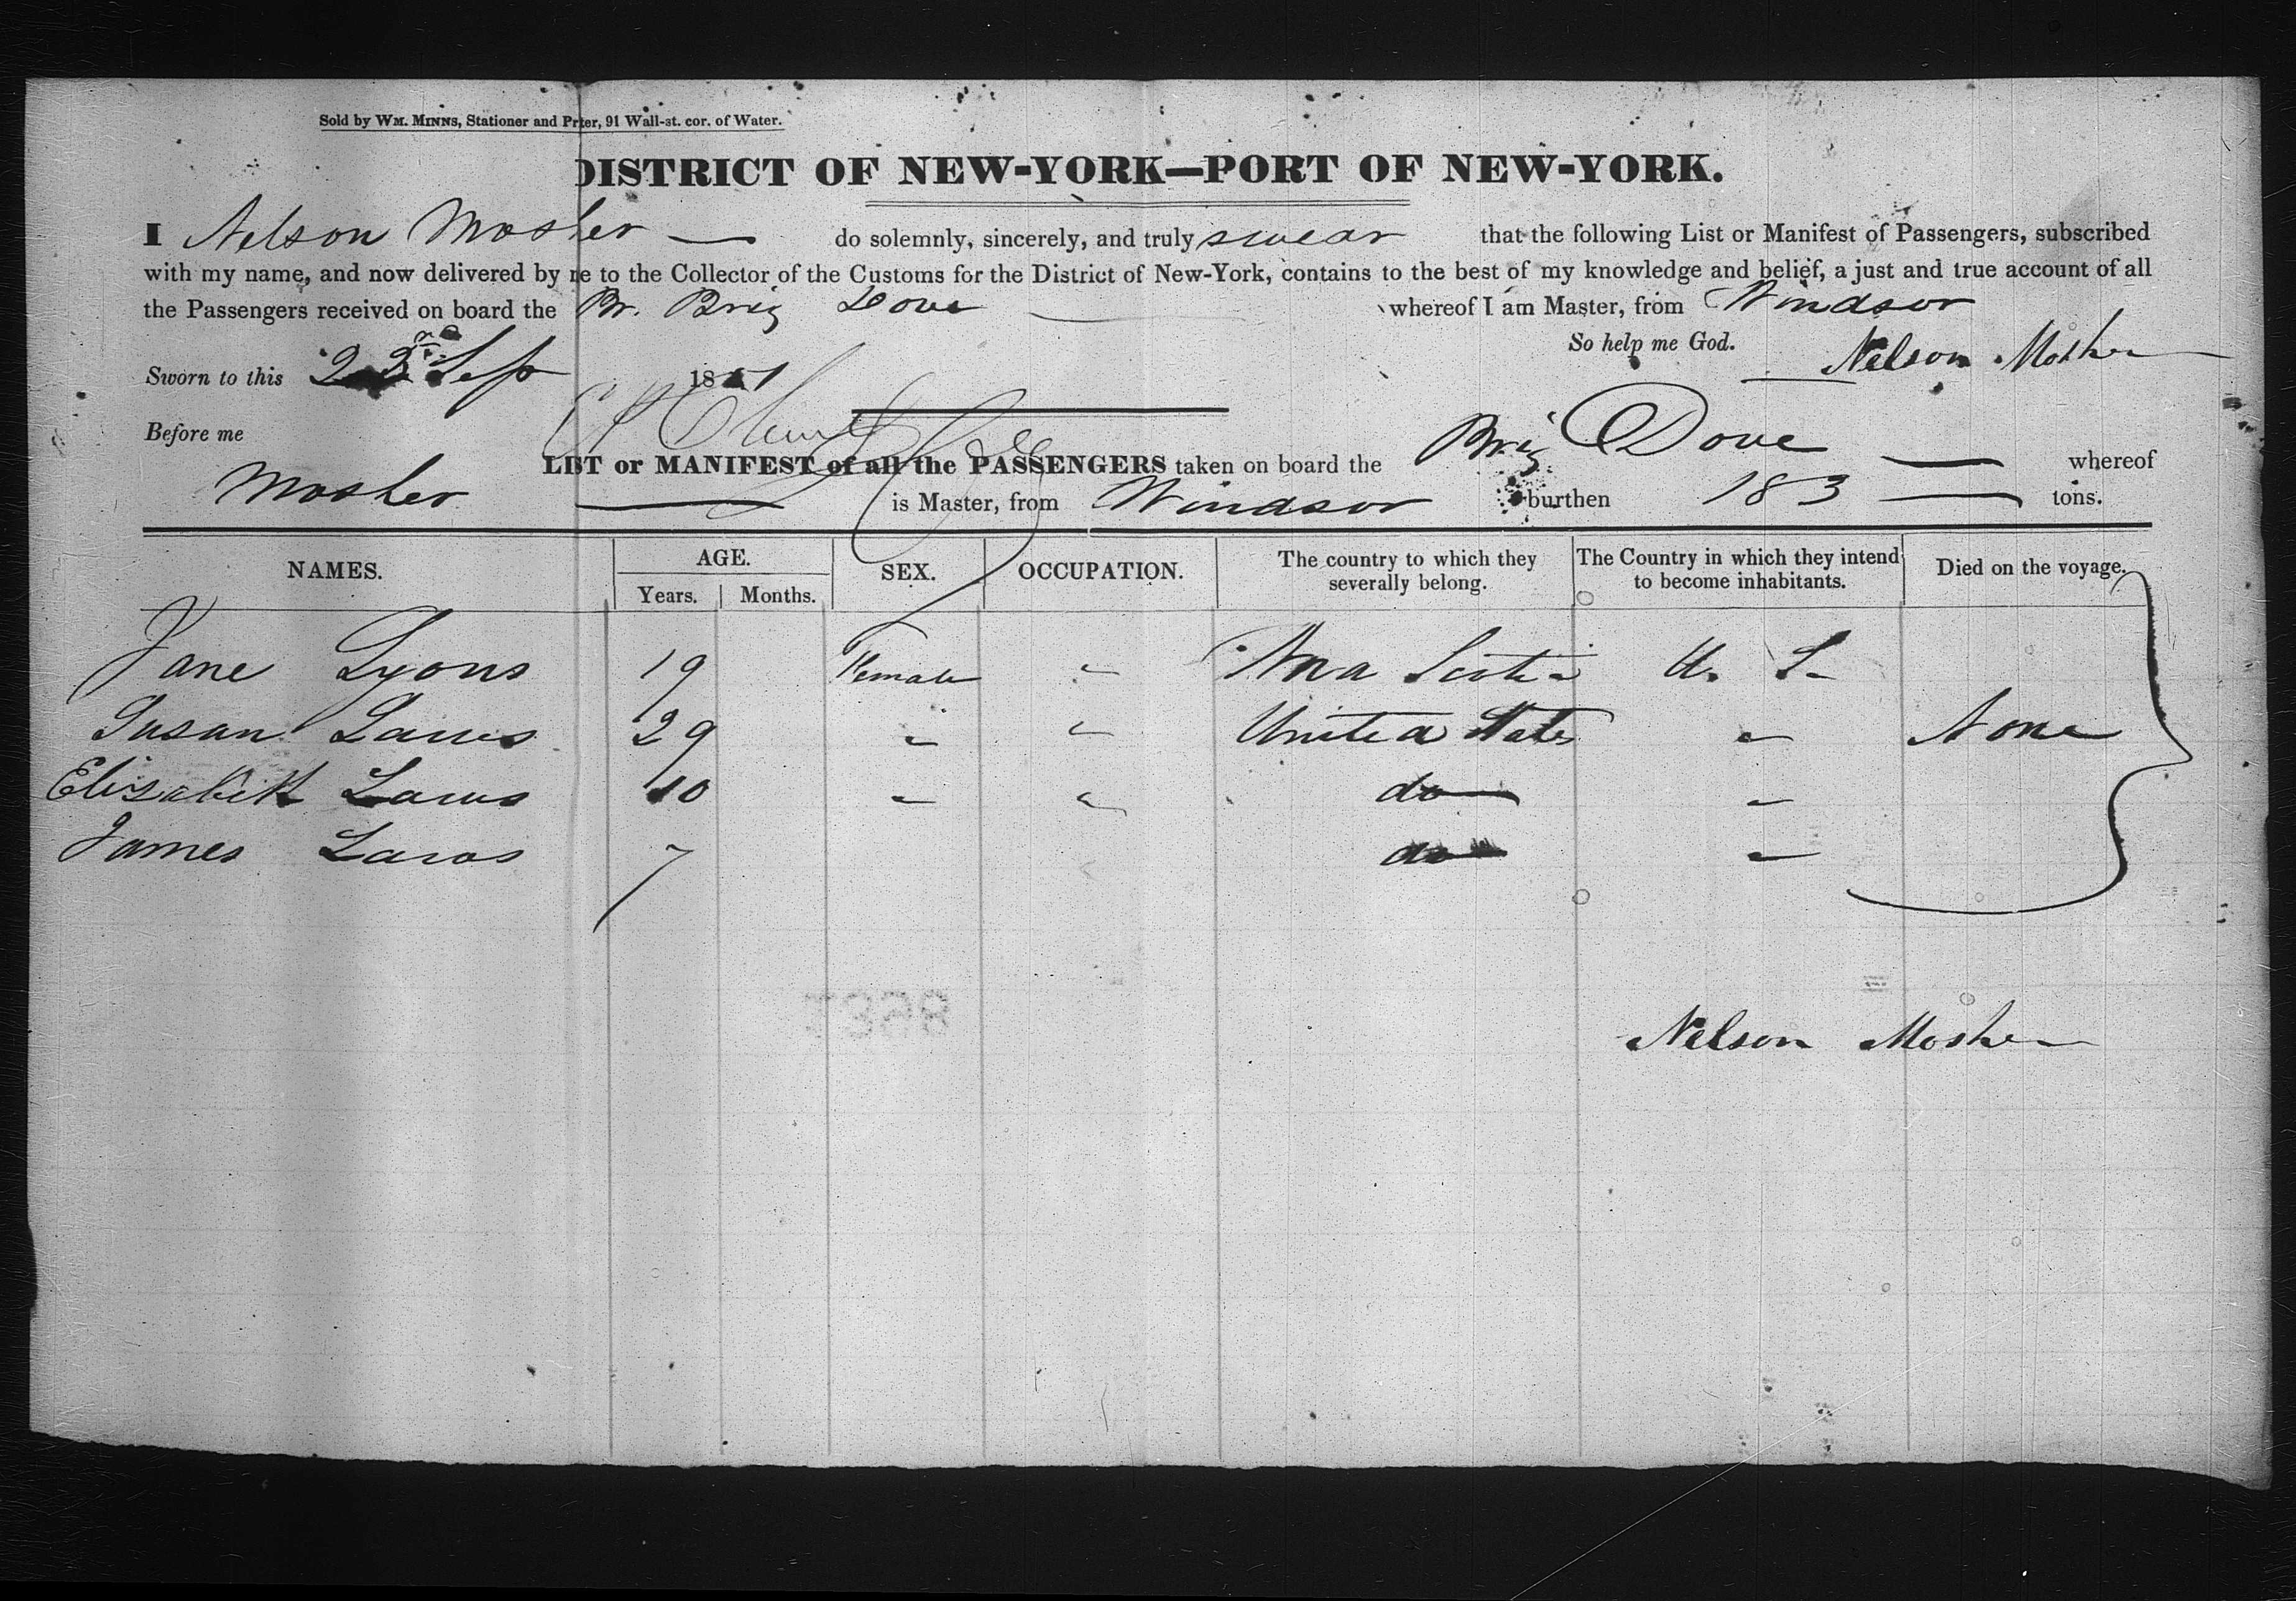 Sold by WM. MINNS, Stationer and Prter, 91 Wall-st. cor. of Water.
DISTRICT OF NEW-YORK—PORT OF NEW-YORK.
I Nelson Mosher — do solemnly, sincerely, and truly swear that the following List or Manifest of Passengers, subscribed
with my name, and now delivered by re to the Collector of the Customs for the District of New-York, contains to the best of my knowledge and belief, a just and true account of all
the Passengers received on board the Br. Brig Dove — whereof I am Master, from Windsor
So help me God.
Sworn to this Sep 1851 Nelson Mosher
Before me
LIST or MANIFEST of all the PASSENGERS taken on board the Brig Dove — whereof
Mosher — is Master, from Windsor burthen 183 — tons.
NAMES. AGE. Years. Months. SEX. OCCUPATION. The country to which they severally belong. The Country in which they intend to become inhabitants. Died on the voyage.
Jane Lyons 19 Female " Nova Scotia U. S.
Susan 29 " " United States " None
Elizabeth 10 " " do "
James 7 do "
Nelson Mosher